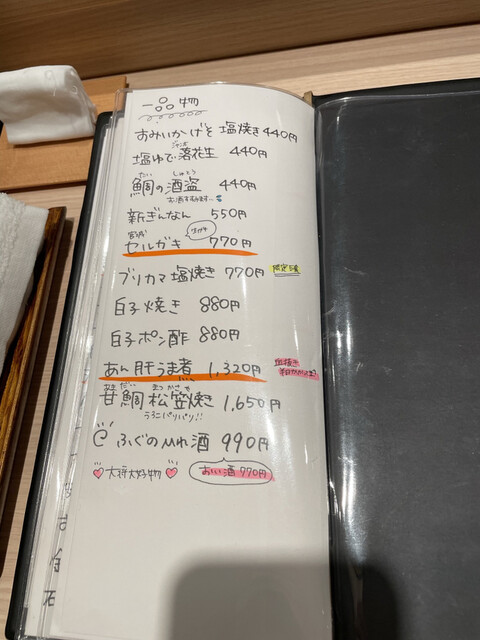 一品物
おみいかげそ 塩焼き 440円
ジャンボ
塩ゆで 落花生 440円
たい しゅとう
鯛の酒盗 440円
お酒すすみます〜
新ぎんなん 550円
セルガキ 770円
ブリカマ 塩焼き 770円 限定5食
白子焼き 880円
白子ポン酢 880円
あん肝うま煮 1,320円
あまだい まつかさやき
甘鯛 松笠焼き 1,650円
うろこパリパリ!!
ふぐのひれ酒 990円
大将大好物 おい酒 770円